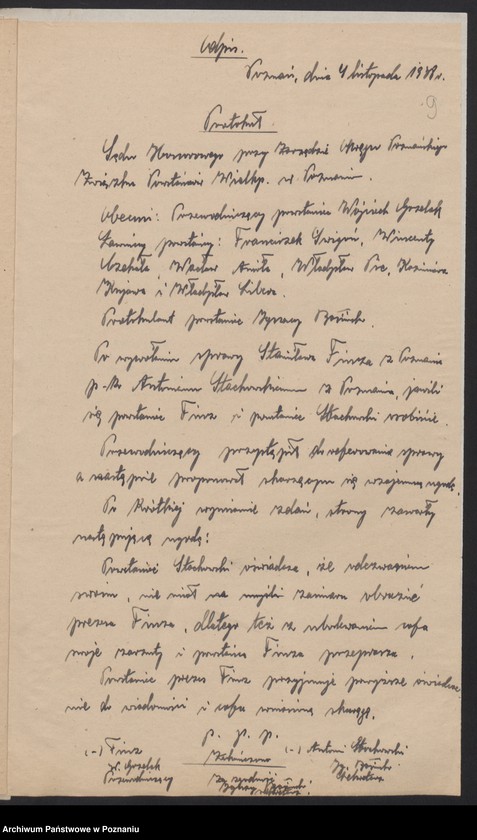 Odpis.
Poznań, dnia 4 listopada 1938 r.
9
Protokół.
Sądu Honorowego przy Zarządzie Okręgu Poznańskiego
Związku Powstańców Wielkp. w Poznaniu.
Obecni: Przewodniczący powstaniec Wojciech Grzelak
Ławnicy powstańcy: Franciszek, Wincenty
Wacław, Władysław, Kazimierz
Kujawa i Władysław
Protokulant powstaniec Ignacy
Po wywołaniu sprawy Stanisława Finza z Poznania
p-ko Antoniemu Stachowskiemu z Poznania, jawili
się powstaniec Finz i powstaniec Stachowski osobiście.
Przewodniczący przystąpił do referowania sprawy
a następnie proponował skarżącym się wzajemną ugodę.
Po krótkiej wymianie zdań, strony zawarły
następującą ugodę:
Powstaniec Stachowski oświadcza, że odezwaniem
swoim, nie miał na myśli zamiaru obrazić
prezesa Finza, dlatego też z ubolewaniem cofa
swoje zarzuty i powstańca Finza przeprasza.
Powstaniec prezes Finz przyjmuje powyższe oświadcze-
nie do wiadomości i cofa wniesioną skargę.
p. p. p.
(-) Finz (-) Antoni Stachowski
W. Grzelak
Przewodniczący
Archiwum Państwowe w Poznaniu